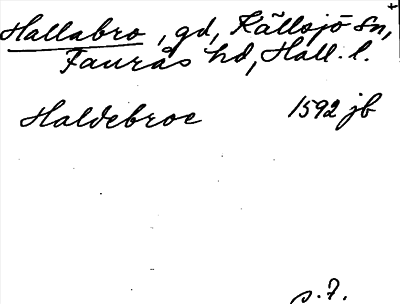 Hallabro, gd, Källsjö sn,
Faurås hd, Hall. l.
Haldebroe 1592 jb
s. 7.